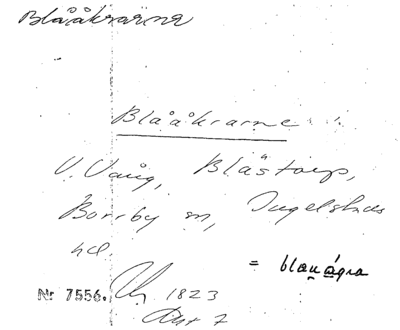 Blååkrarna
Blååkrarne
V. Vång, Blästorp,
Borrby sn, Ingelstads
hd.
= blauágra
Nr 7556. 1823
Akt 7